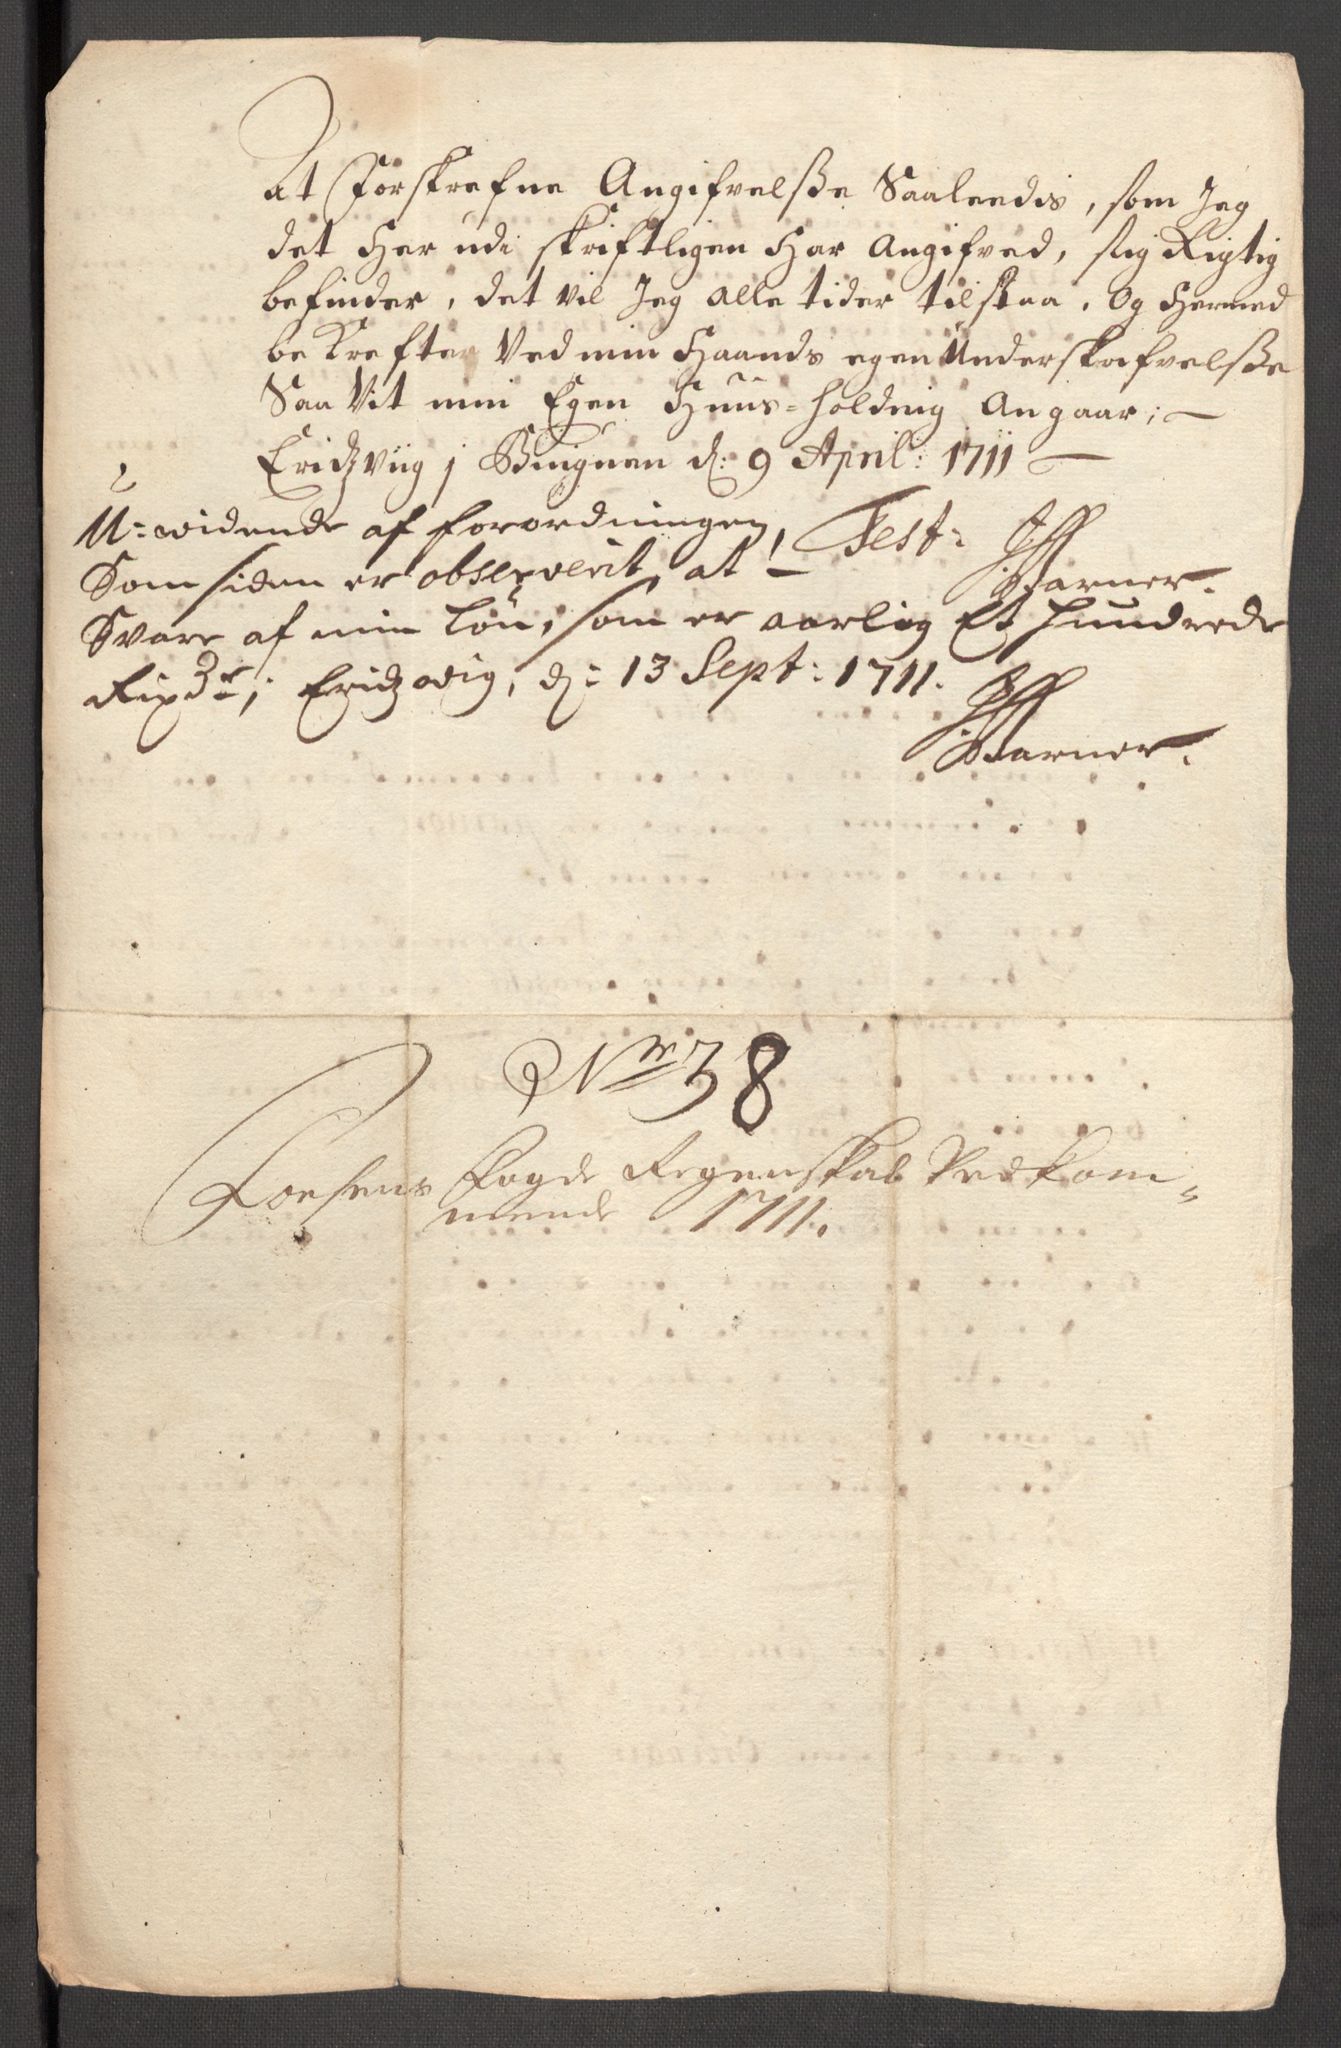 At Forskrefne Angifvelsse Saaleedis, som Jeg
det Her udi skriftligen Har Angifved, sig Rigtig
befinder, det vil Jeg alle tider tilstaa, Og Hermed
be Krefter Ved min Haands egen Underskrifvelsse
Saa Vit min Egen Huus-holdnig Angaar;
Eridzviig j d: 9 April: 1711
U-widende af forordningen, Test:
Som siden er observerit, at
Barner.
Svare af min Løn, som er aarlig Et hundrede
Rixdr, Eridzvig, d: 13 Sept: 1711.
Barner.
No 38
Foesens Fogde Regenskab Vedkom-
mende 1711.